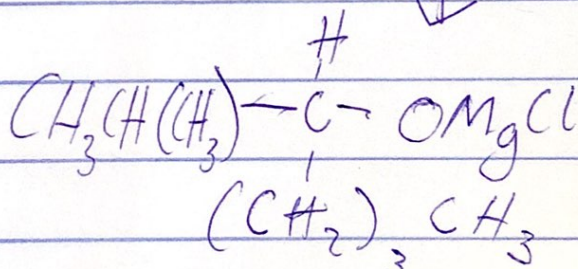 H
CH₃CH(CH₃)—C—OMgCl
(CH₂)₂CH₃